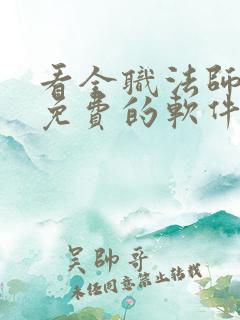 看全職法師
免費的軟件
吴帥哥
未经同意禁止转载